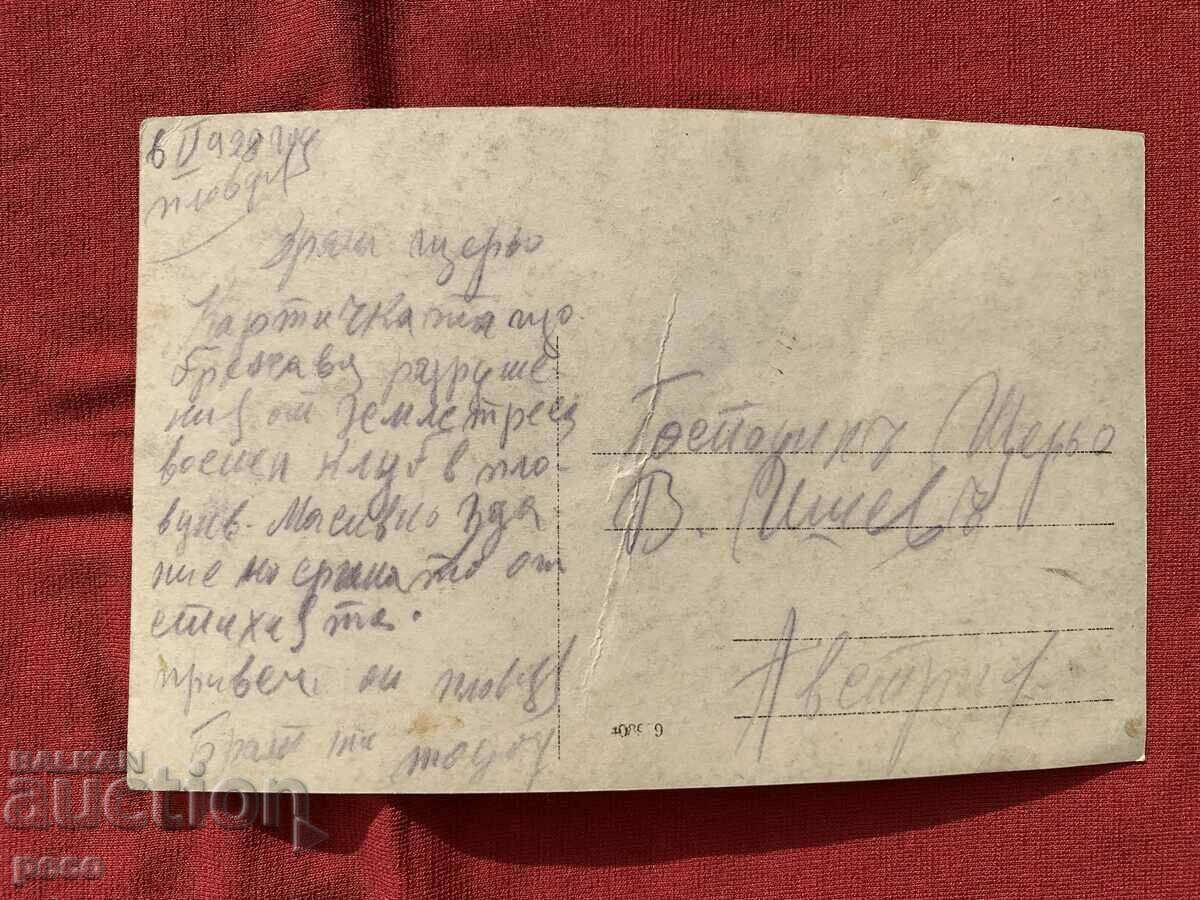 6 II 928 год
Пловдив
Драги Щерьо
Картичката изо
бразява разруше
ния от земетресе
военен клуб в Пло-
вдив. Масивно Зда
ние но срината от
стихията.
привет от Пловдив
Брат ти Тодор
Господинъ Щерьо
В. Ишевъ
Австрия
BALKAN
auction
poco